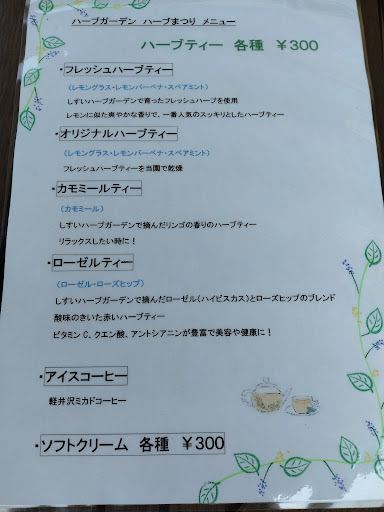 ハーブガーデン ハーブまつり メニュー
ハーブティー 各種 ￥300
・フレッシュハーブティー
（レモングラス・レモンバーベナ・スペアミント）
しすいハーブガーデンで育ったフレッシュハーブを使用
レモンに似た爽やかな香りで、一番人気のスッキリとしたハーブティー
・オリジナルハーブティー
（レモングラス・レモンバーベナ・スペアミント）
フレッシュハーブティーを当園で乾燥
・カモミールティー
（カモミール）
しすいハーブガーデンで摘んだリンゴの香りのハーブティー
リラックスしたい時に！
・ローゼルティー
（ローゼル・ローズヒップ）
しすいハーブガーデンで摘んだローゼル（ハイビスカス）とローズヒップのブレンド
酸味のきいた赤いハーブティー
ビタミンC、クエン酸、アントシアニンが豊富で美容や健康に！
・アイスコーヒー
軽井沢ミカドコーヒー
・ソフトクリーム 各種 ￥300